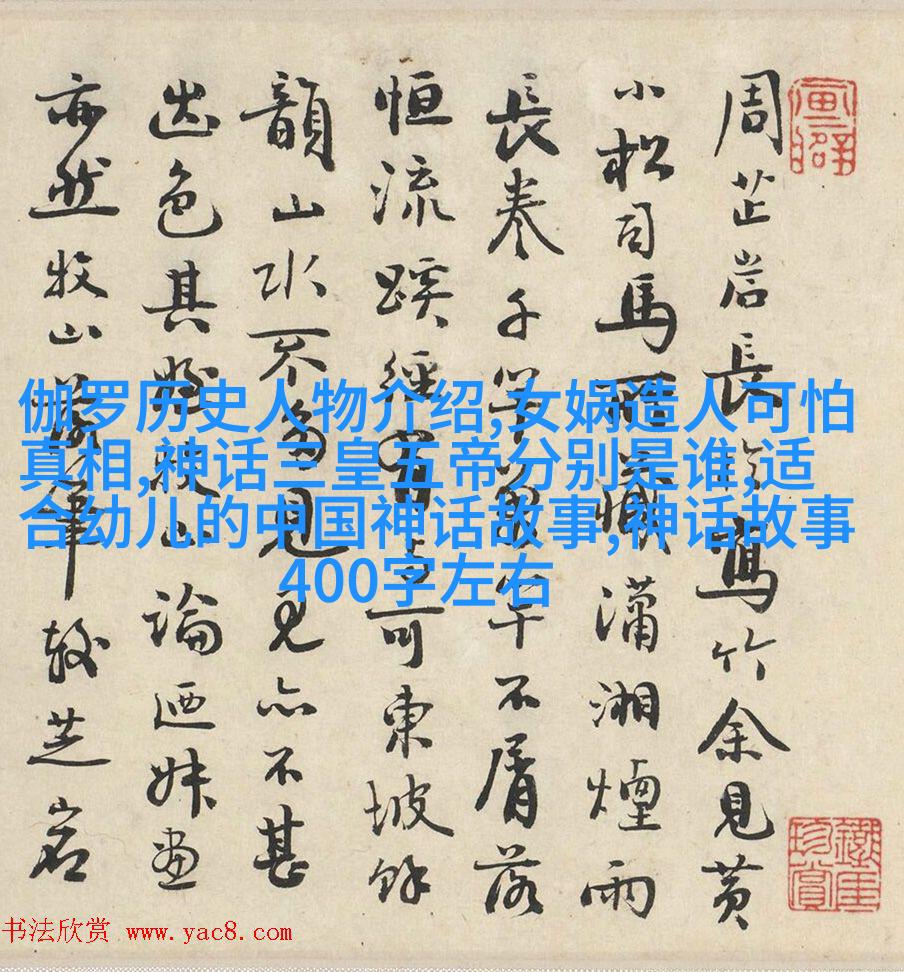 伽罗历史人物介绍,女娲造人可怕
真相,神话三皇五帝分别是谁,适
合幼儿的中国神话故事,神话故事
400字左右
周芷岩長寫竹余見黃
小松司馬所藏瀟湘煙雨
長卷千竿不屑落
恒流蹊徑可東坡餘
韻山水不多見見亦不甚
出色其牧山論迺妹畫
亦然牧山筆較芝岩
书法欣赏 www.yac8.com